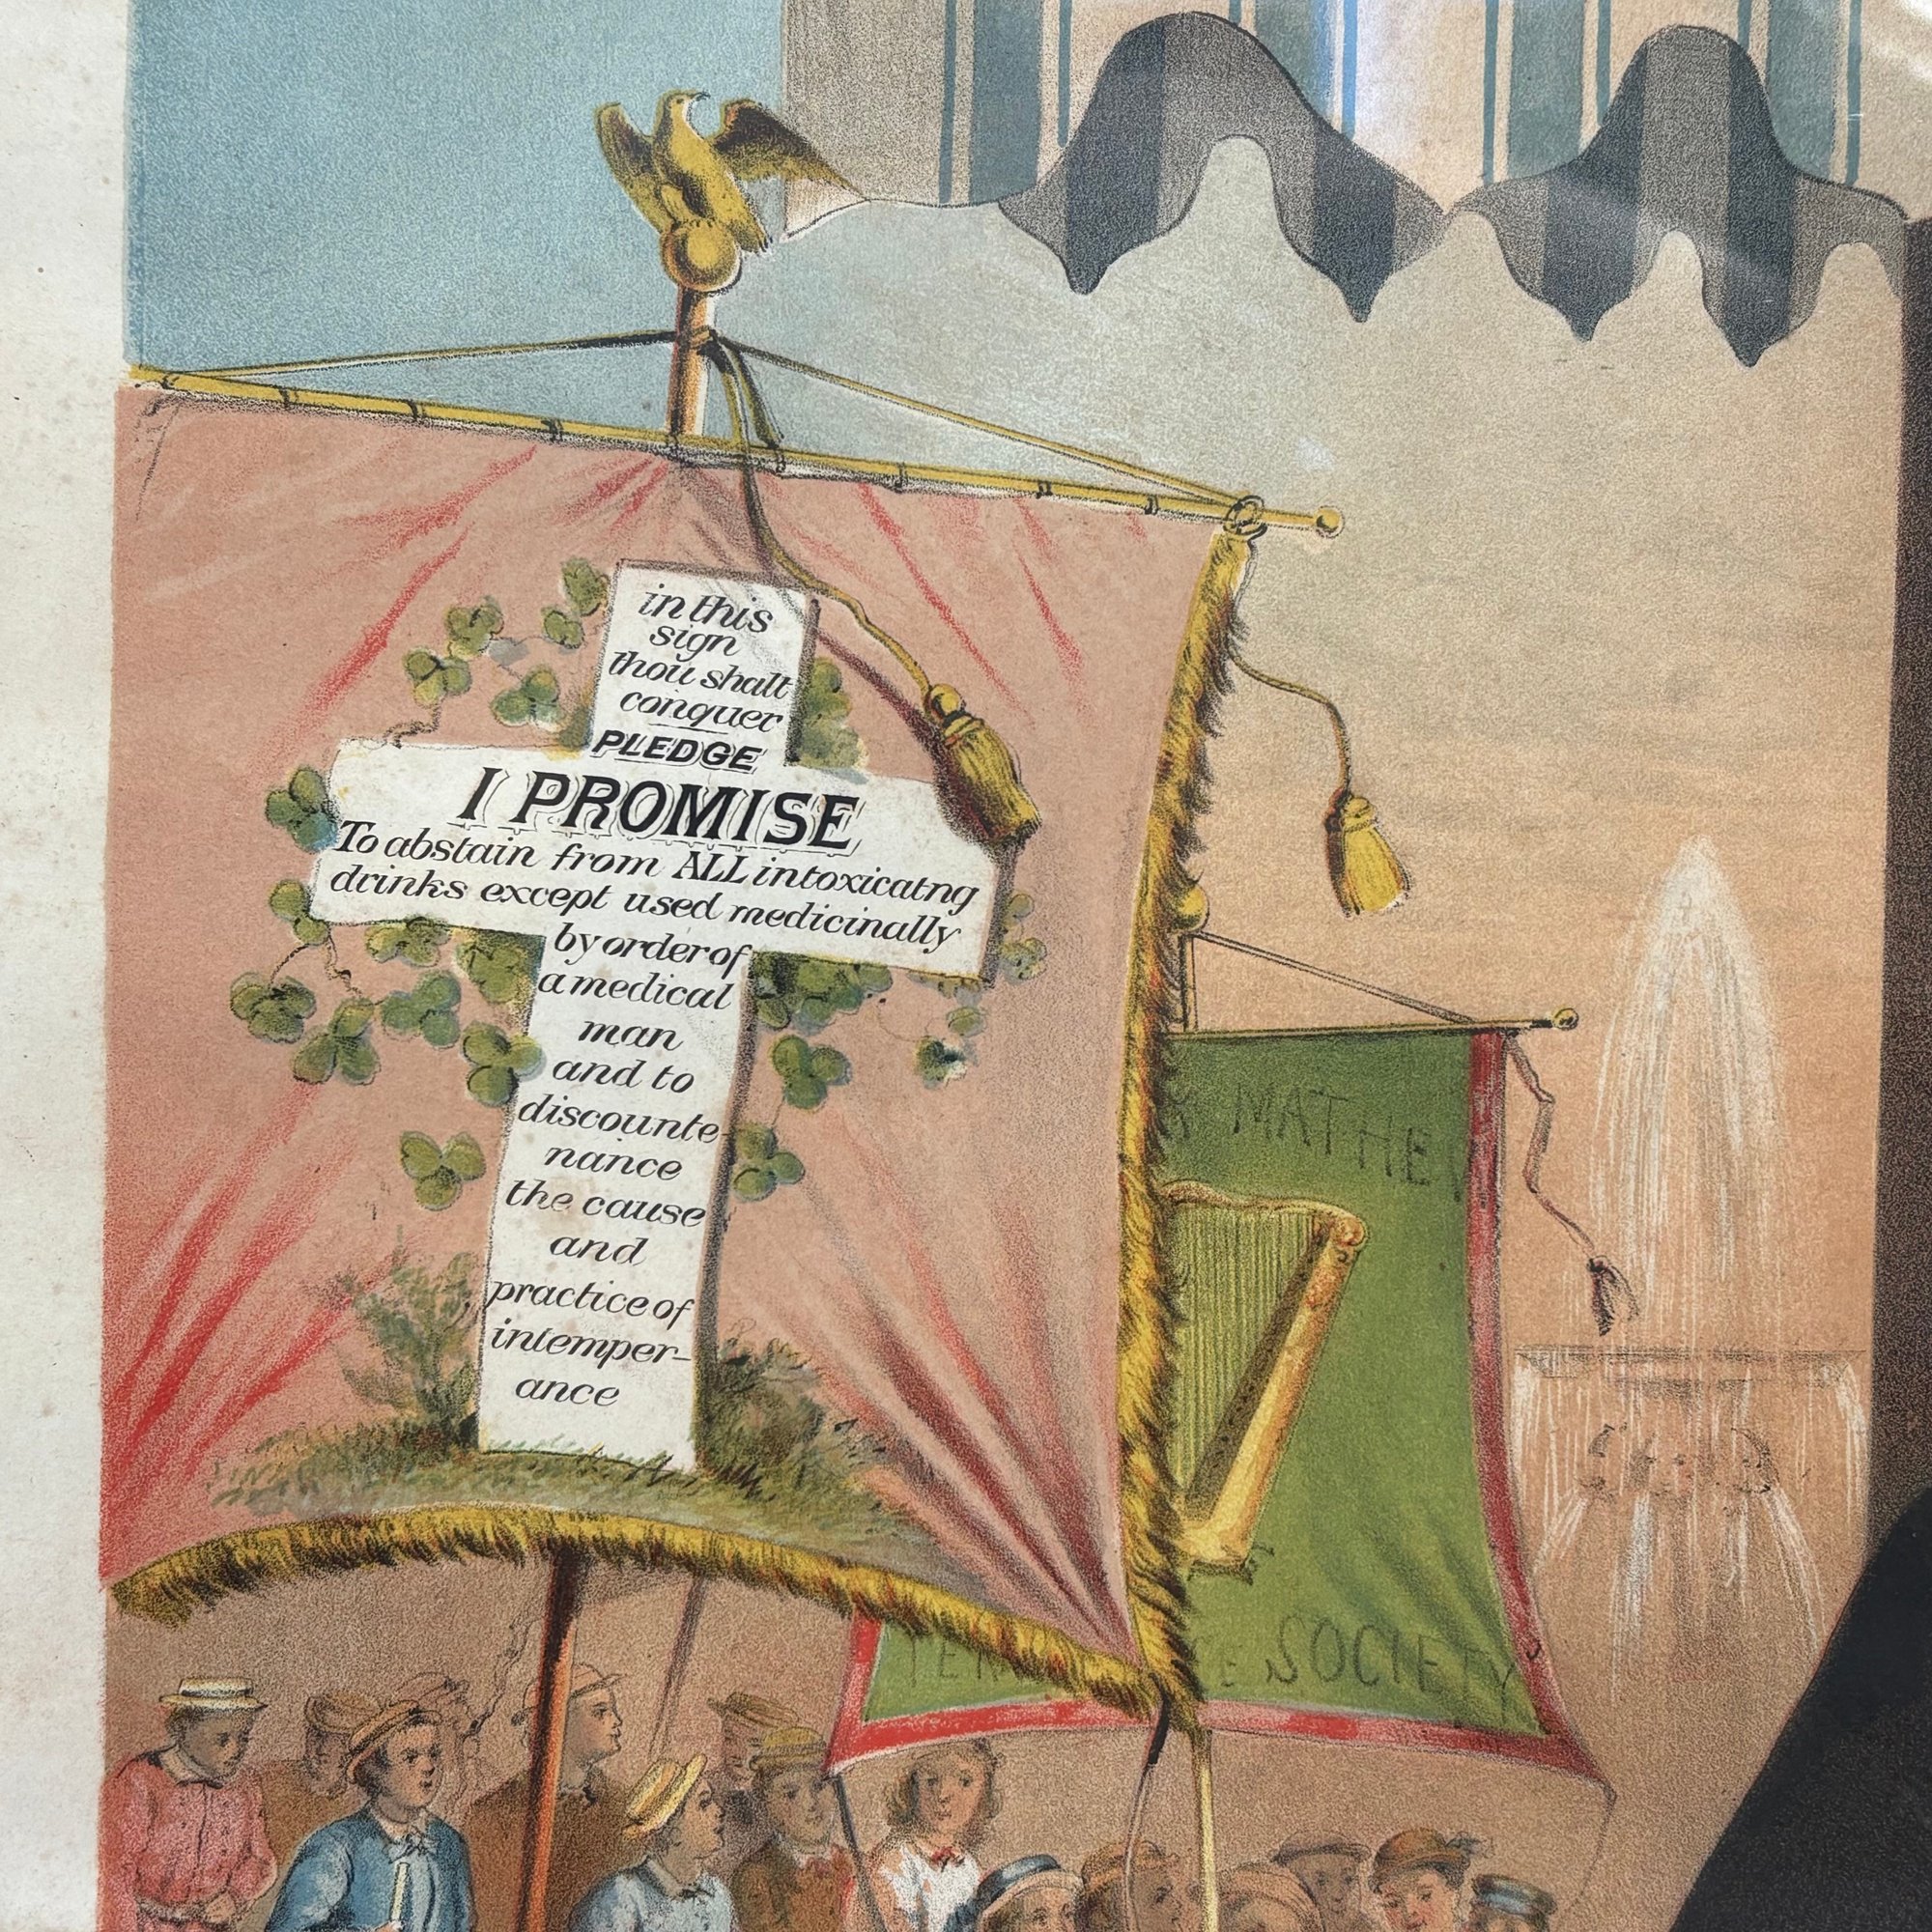 in this
sign
thou shalt
conquer
PLEDGE
I PROMISE
To abstain from ALL intoxicatng
drinks except used medicinally
by order of
a medical
man
and to
discounte-
nance
the cause
and
practice of
intemper-
ance
MATHE
SOCIETY